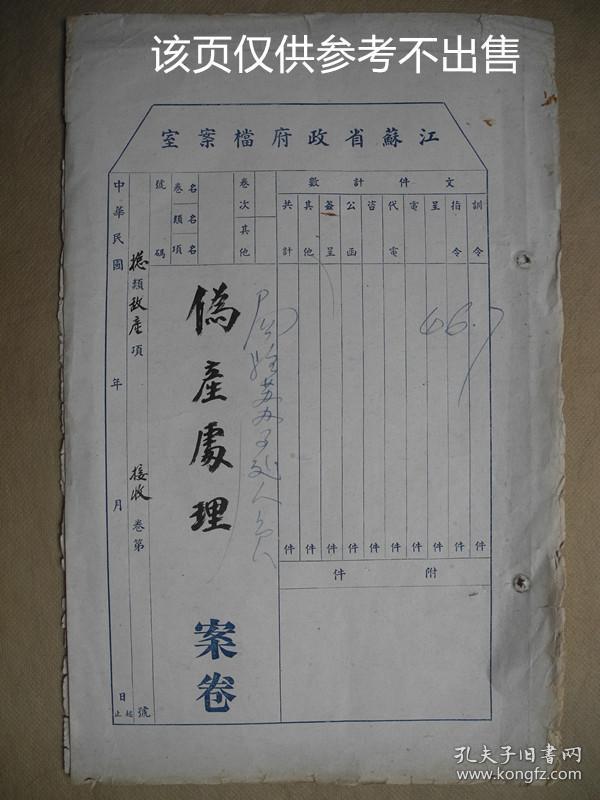 该页仅供参考不出售
江蘇省政府檔案室
文件計數
訓令
指令
呈
電
代電
咨
公函
簽呈
其他
共計
件 件 件 件 件 件 件 件 件 件
附件
66.7
卷次
其他
卷名
類名
項名
號碼
偽產處理
案卷
類敌產項
接收卷第
號
中華民國 年 月 日
起
止
孔夫子旧书网
www.kongfz.com